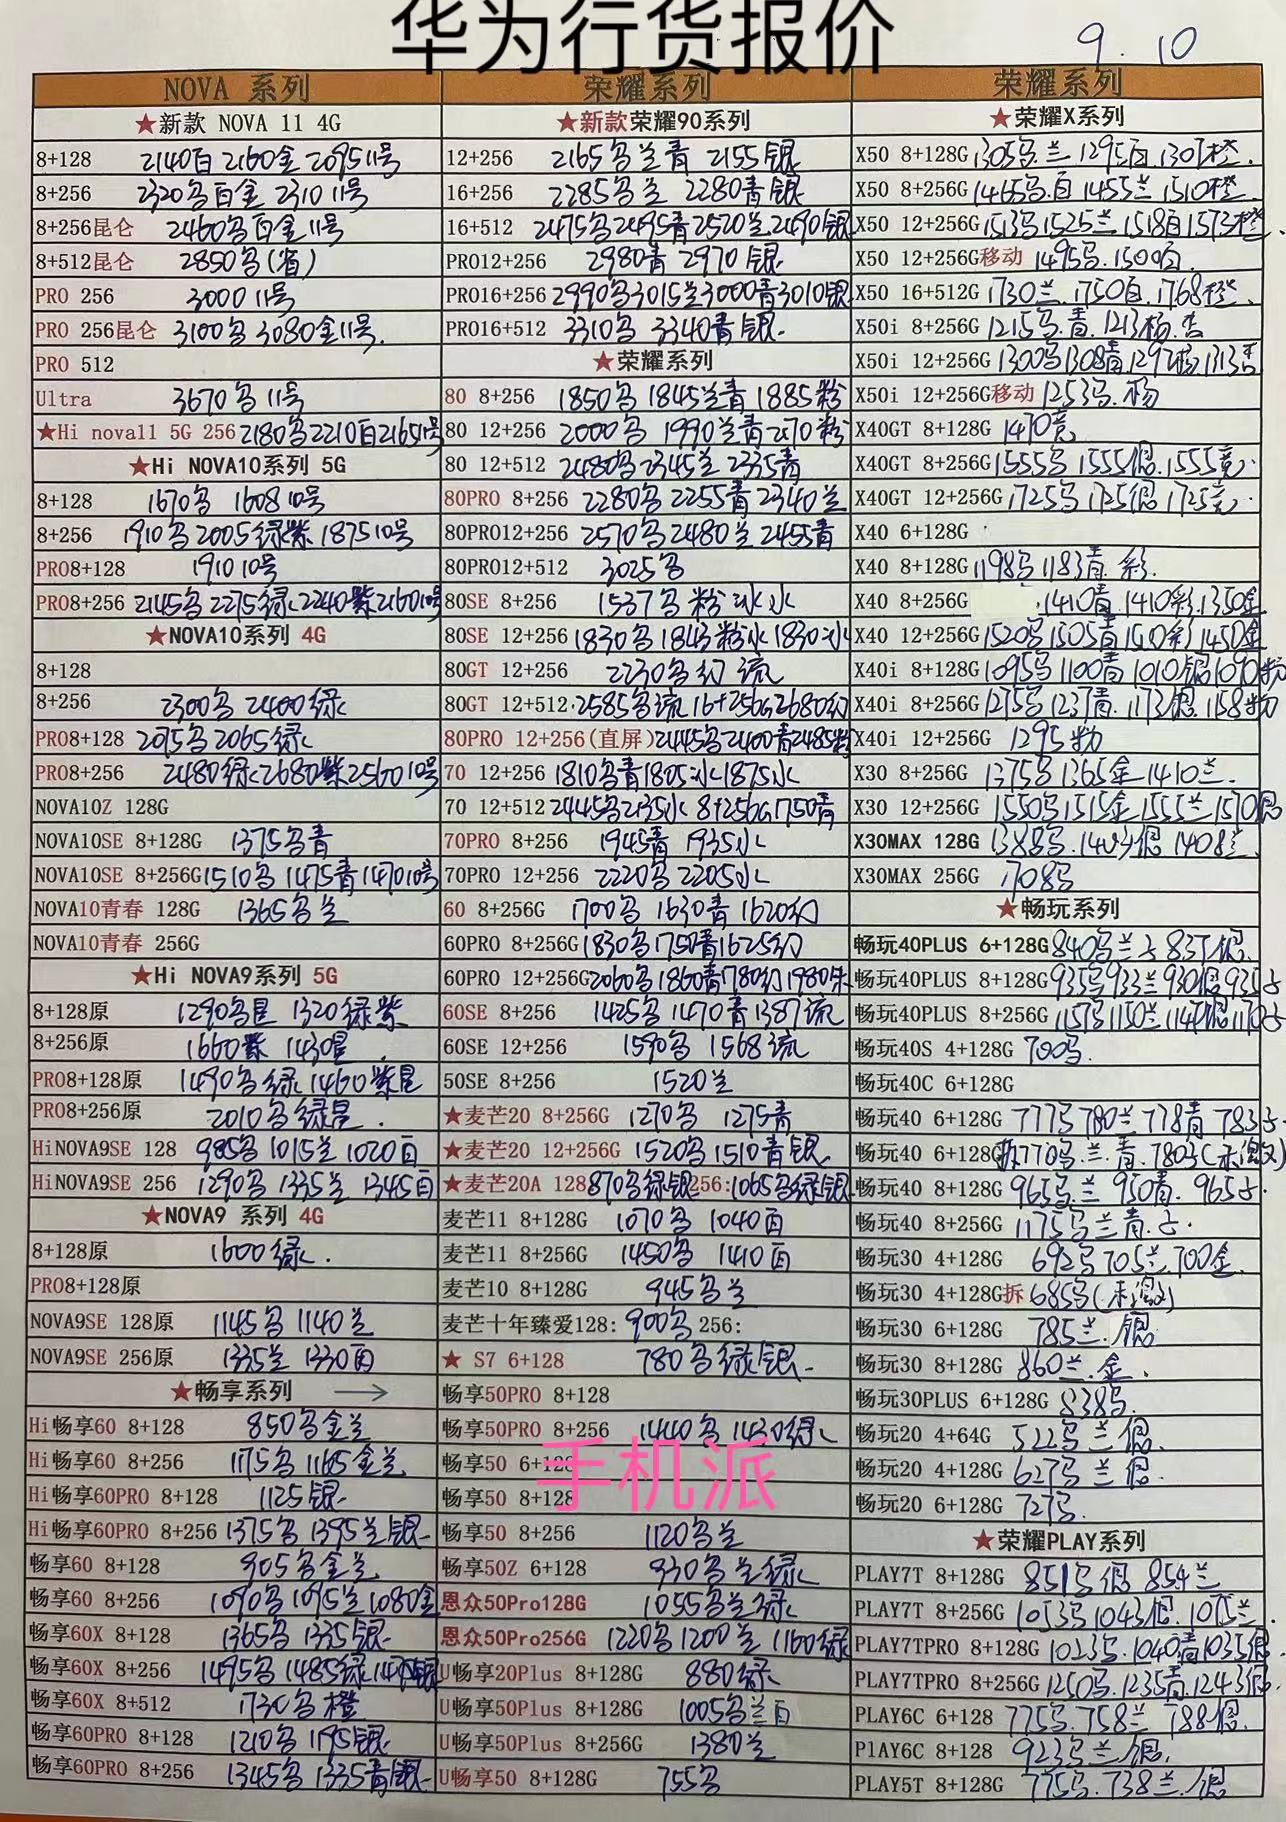 华为行货报价
9.10
NOVA 系列
★新款 NOVA 11 4G
8+128 2140白 2160金 2095 11号
8+256 2320鸟白金 2310 11号
8+256昆仑 2460鸟白金11号
8+512昆仑 2850鸟(省)
PRO 256 3000 11号
PRO 256昆仑 3100鸟 3080金11号.
PRO 512
Ultra 3670鸟 11号
★Hi nova11 5G 256 2180鸟2210白2165 11号
★Hi NOVA10系列 5G
8+128 1670鸟 1608 10号
8+256 1910鸟 2005绿紫 1875 10号
PRO8+128 1910 10号
PRO8+256 2145鸟 2275绿 2240紫2160 10号
★NOVA10系列 4G
8+128
8+256 2300鸟 2400绿
PRO8+128 2075鸟2065绿
PRO8+256 2480绿2680紫2560 10号
NOVA10Z 128G
NOVA10SE 8+128G 1375鸟青
NOVA10SE 8+256G 1510鸟 1475青1470 10号
NOVA10青春 128G 1365鸟兰
NOVA10青春 256G
★Hi NOVA9系列 5G
8+128原 1290鸟星 1320绿紫
8+256原 1660紫 1430星.
PRO8+128原 1490鸟绿1460紫星
PRO8+256原 2010鸟绿星.
HiNOVA9SE 128 985鸟 1015兰 1020白
HiNOVA9SE 256 1290鸟 1335兰 1345白
★NOVA9 系列 4G
8+128原 1600绿.
PRO8+128原
NOVA9SE 128原 1145鸟 1140兰
NOVA9SE 256原 1335兰 1330白
★畅享系列 →
Hi畅享60 8+128 850鸟金兰
Hi畅享60 8+256 1175鸟 1165金兰
Hi畅享60PRO 8+128 1125银
Hi畅享60PRO 8+256 1375鸟 1395兰银
畅享60 8+128 905鸟金兰
畅享60 8+256 1090鸟1095兰1080金
畅享60X 8+128 1365鸟 1335银
畅享60X 8+256 1495鸟 1485绿 银
畅享60X 8+512 1730鸟橙
畅享60PRO 8+128 1210鸟 1195银
畅享60PRO 8+256 1345鸟 1335青银
荣耀系列
★新款荣耀90系列
12+256 2165鸟兰青 2155银
16+256 2285鸟兰 2280青银
16+512 2475鸟2495青2520兰2490银
PRO12+256 2980青 2970银
PRO16+256 2990鸟3015兰3000青3010银
PRO16+512 3310鸟 3340青银
★荣耀系列
80 8+256 1850鸟 1845兰青 1885粉
80 12+256 2000鸟 1990兰青 粉
80 12+512 2480鸟2345兰2335青
80PRO 8+256 2280鸟 2255青2340兰
80PRO12+256 2570鸟2480兰 2455青
80PRO12+512 3025鸟
80SE 8+256 1537鸟 粉 冰水
80SE 12+256 1830鸟 1843粉冰 1830冰
80GT 12+256 2230鸟幻 流
80GT 12+512 2585鸟流 16+256G2680幻
80PRO 12+256(直屏) 2445鸟2400青2485粉
70 12+256 1810鸟青1805冰1875水
70 12+512 2445鸟2135水 8+256G1750青
70PRO 8+256 1945青 1935水
70PRO 12+256 2220鸟 2205水
60 8+256G 1700鸟 1630青 1620幻
60PRO 8+256G 1830鸟1750青1625幻
60PRO 12+256G 2060鸟1860青1780幻1980朱
60SE 8+256 1425鸟 1470青1387流
60SE 12+256 1590鸟 1568流
50SE 8+256 1520兰
★麦芒20 8+256G 1270鸟 1275青
★麦芒20 12+256G 1520鸟 1510青银
★麦芒20A 128 870鸟绿银 256:1065鸟绿银
麦芒11 8+128G 1070鸟 1040白
麦芒11 8+256G 1450鸟 1410白
麦芒10 8+128G 945鸟兰
麦芒十年臻爱128: 900鸟 256:
★ S7 6+128 780鸟绿银
畅享50PRO 8+128
畅享50PRO 8+256 1440鸟 1430绿
畅享50 6+128
畅享50 8+128
畅享50 8+256 1120鸟兰
畅享50Z 6+128 930鸟兰绿
恩众50Pro128G 1055鸟兰绿
恩众50Pro256G 1220鸟1200兰 1160绿
U畅享20Plus 8+128G 880绿
U畅享50Plus 8+128G 1005鸟兰白
U畅享50Plus 8+256G 1380兰
U畅享50 8+128G 755鸟
手机派
荣耀系列
★荣耀X系列
X50 8+128G 1305鸟兰 1295白 1307橙.
X50 8+256G 1465鸟.白 1455兰 1510橙
X50 12+256G 1513鸟1525兰 1518白1573橙.
X50 12+256G移动 1495鸟.1500白.
X50 16+512G 1730兰.1750白.1768橙.
X50i 8+256G 1215鸟.青.1213杨.杏
X50i 12+256G 1300鸟1308青.1297杨1313杏
X50i 12+256G移动 1253鸟.杨
X40GT 8+128G 1470竞
X40GT 8+256G 1555鸟 1555银.1555竞
X40GT 12+256G 1725鸟 1725银 1725竞
X40 6+128G
X40 8+128G 1198鸟1183青.彩.
X40 8+256G .1410青.1410彩.1350金
X40 12+256G 1520鸟1505青1510彩1450金
X40i 8+128G 1095鸟1100青 1010银1090粉
X40i 8+256G 1275鸟 1237青.1173银.1158粉
X40i 12+256G 1295粉
X30 8+256G 1375鸟 1365金 1410兰.
X30 12+256G 1550鸟1515金 1555兰1570银
X30MAX 128G 1385鸟.银 1408兰
X30MAX 256G 1708鸟
★畅玩系列
畅玩40PLUS 6+128G 840鸟兰 837银.
畅玩40PLUS 8+128G 935鸟933兰930银935
畅玩40PLUS 8+256G 1157鸟1150兰1140银1170
畅玩40S 4+128G 700鸟.
畅玩40C 6+128G
畅玩40 6+128G 777鸟 780兰 778青 783
畅玩40 6+128G拆770鸟.兰.青.780鸟(未激)
畅玩40 8+128G 965鸟.兰 950青. 965
畅玩40 8+256G 1175鸟兰青.
畅玩30 4+128G 692鸟 705兰 700金.
畅玩30 4+128G拆 685鸟(未激)
畅玩30 6+128G 785兰.银
畅玩30 8+128G 860兰.金.
畅玩30PLUS 6+128G 838鸟.
畅玩20 4+64G 522鸟兰银.
畅玩20 4+128G 627鸟 兰 银.
畅玩20 6+128G 727鸟.
★荣耀PLAY系列
PLAY7T 8+128G 851鸟银 854兰
PLAY7T 8+256G 1053鸟1043银.1075兰.
PLAY7TPRO 8+128G 1023鸟.1040青1035银.
PLAY7TPRO 8+256G 1250鸟.1235青.1243银.
PLAY6C 6+128 775鸟.758兰 788银.
PlAY6C 8+128 923鸟兰银.
PLAY5T 8+128G 775鸟.738兰.银